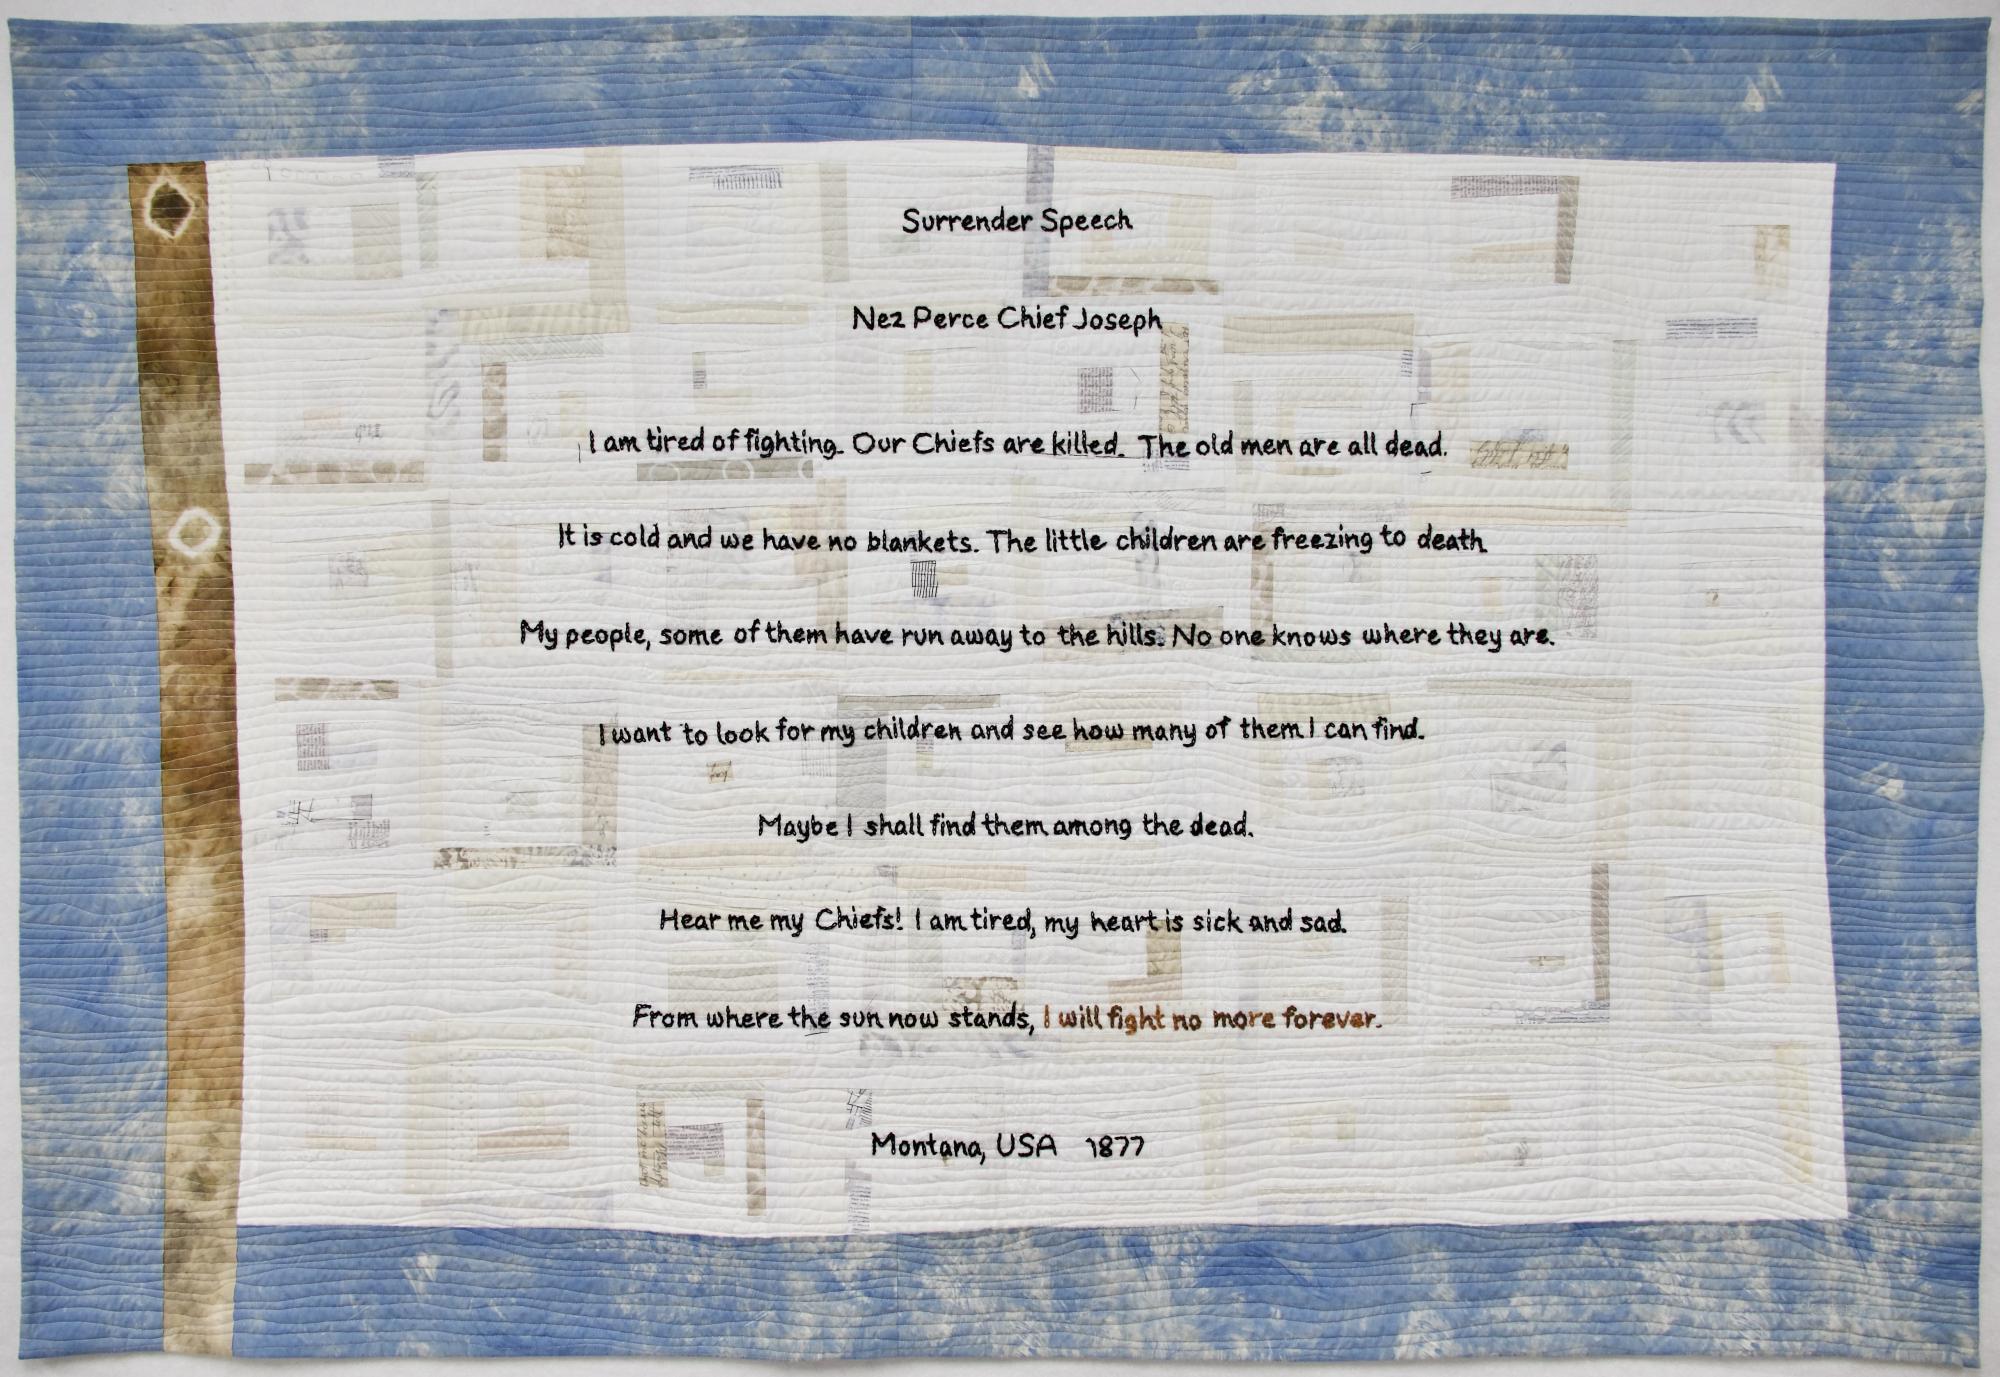 Surrender Speech
Nez Perce Chief Joseph
I am tired of fighting. Our Chiefs are killed. The old men are all dead.
It is cold and we have no blankets. The little children are freezing to death.
My people, some of them have run away to the hills. No one knows where they are.
I want to look for my children and see how many of them I can find.
Maybe I shall find them among the dead.
Hear me my Chiefs! I am tired, my heart is sick and sad.
From where the sun now stands, I will fight no more forever.
Montana, USA 1877